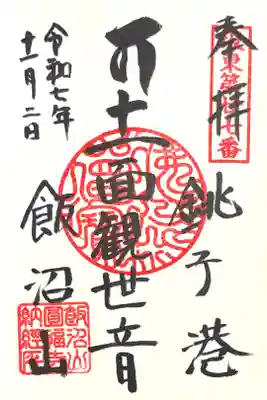 奉拝
銚子港
十一面観世音
飯沼山
令和七年
十一月二日
飯沼山
圓福寺
納経所